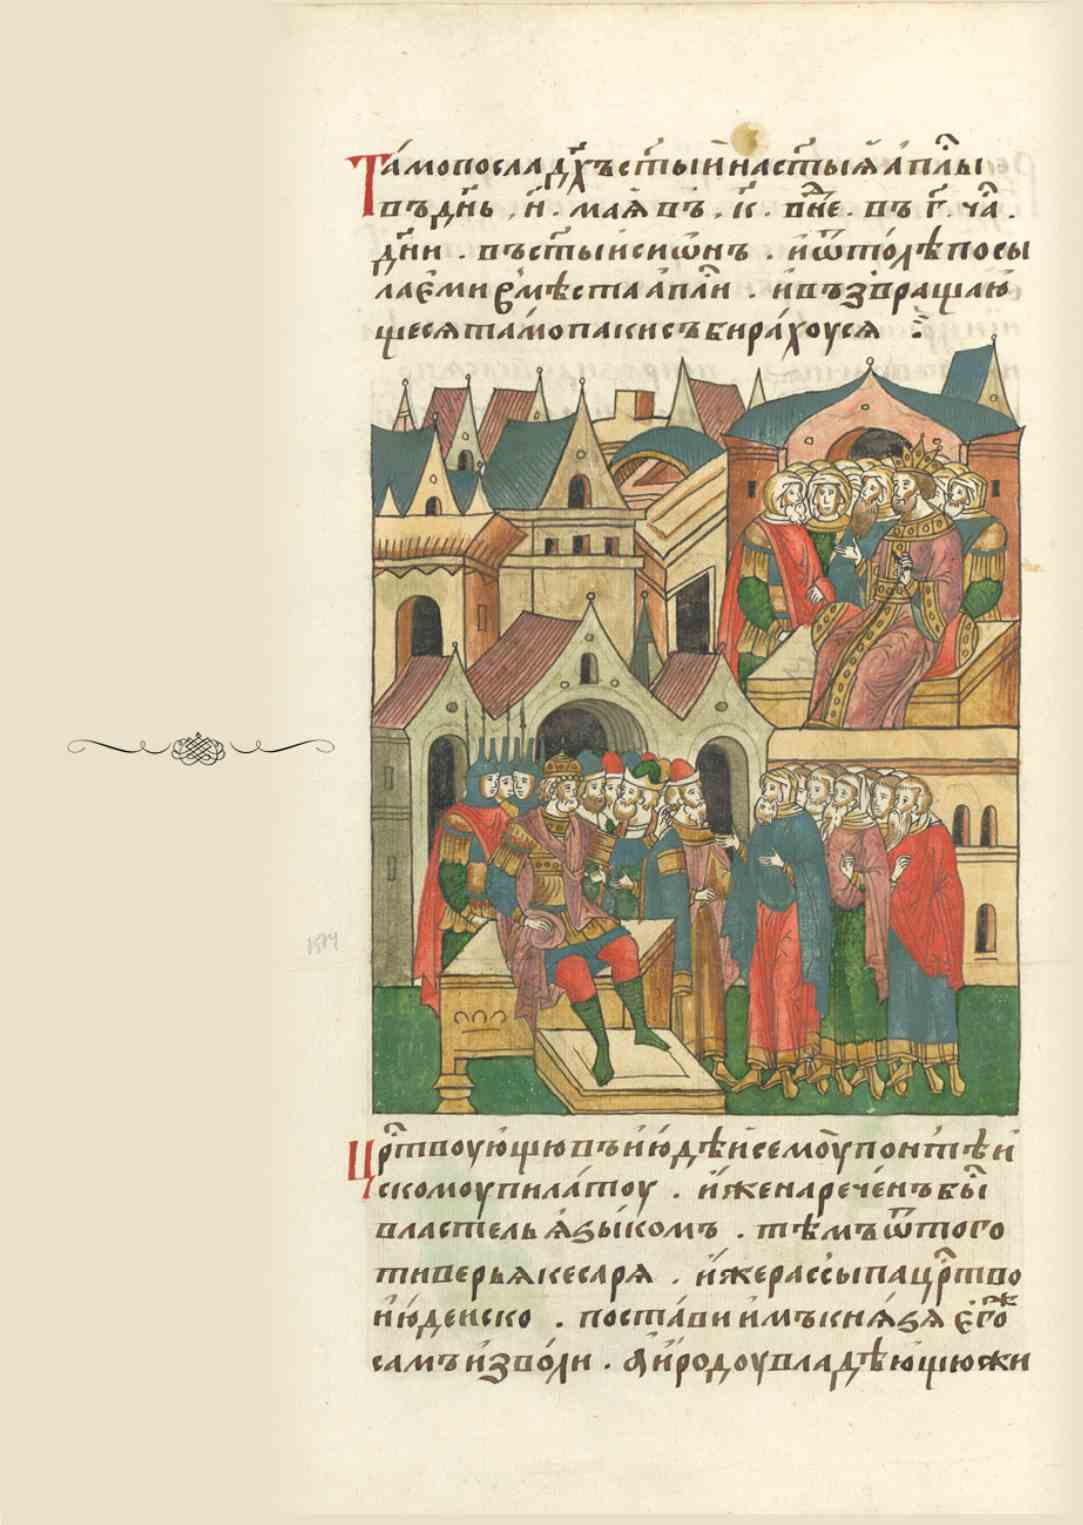 Та́мопослад҃хъст҃ыйнаст҃ыѧ̀а҆пⷭ҇лы
въд҃нь . и҃ . маѧвъ . к҃ . в҃не . въ г҃ . чⷭ҇а .
дн҃и . въст҃ыисиѡнъ . иѿто́лѣпосы
лаємиѡмѣстаапⷭ҇ли . ивъзвраща́ю
щесѧта́мопакисъбира́хоусѧ
црⷭ҇твоую́щювъию́дѣисемоу̀понтѣи
скомоупила́тоу . и҆́женарече́нъбы́
властельꙗ҆зы́комъ . тѣ́мъѿтого
тиверьѧкесарѧ . и҆́жерассы́пацрⷭ҇тво
ию́деиско . поста́виимъкнѧ́ѕѧ є҆гоⷤ
самъизво́ли . а҆и҆́родоувладѣю́щюжи